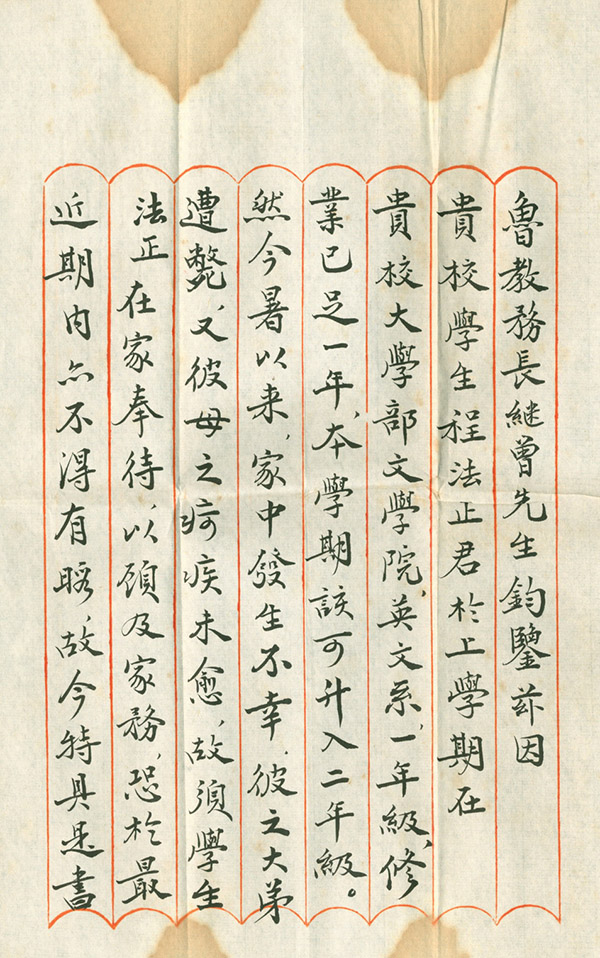 魯教務長繼曾先生鈞鑒茲因
貴校學生程法正君於上學期在
貴校大學部文學院，英文系，一年級，修
業已足一年，本學期該可升入二年級。
然今暑以來，家中發生不幸，彼之大弟
遭斃，又彼母之疴疾未愈，故須學生
法正在家奉待，以顧及家務，恐於最
近期內亦不得有暇，故今特具是書